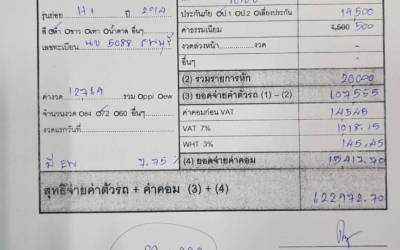 รุ่นย่อย H1 ปี 2014
ประกันภัย 1 2 เดี่ยงประกัน 19,500
สี ดำ ขาว เทา น้ำตาล อื่นๆ
ค่าธรรมเนียม 1,500 500
เลขทะเบียน 5088
งวดล่วงหน้า งวด -
อื่นๆ
(2) รวมรายการหัก 20000
ค่างวด 12,769 รวม ppi ew
(3) ยอดจ่ายค่าตัวรถ (1) - (2) 107,555
จำนวนงวด 84 72 60 อื่นๆ
ค่าคอมก่อน VAT 14545
งวดแรกวันที่
VAT 7% 1018.15
WHT 3% 145.45
7.75%
(4) ยอดจ่ายค่าคอม 15417.70
สุทธิจ่ายค่าตัวรถ + ค่าคอม (3) + (4)
122972.70